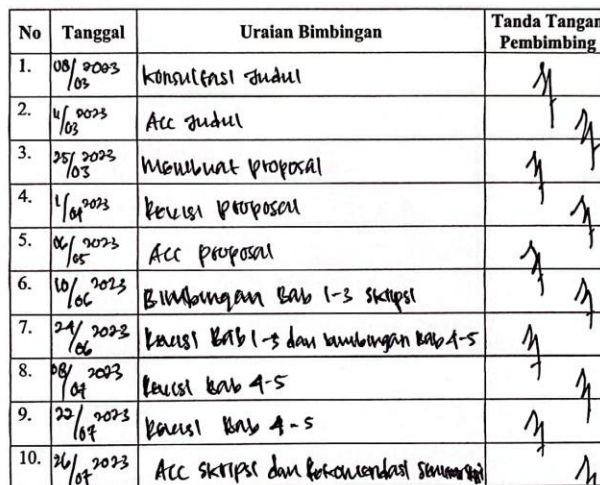 No Tanggal Uraian Bimbingan Tanda Tangan Pembimbing
1. 08/03 2023 Konsultasi Judul
2. 11/03 2023 Acc Judul
3. 25/03 2023 Membuat proposal
4. 1/04 2023 Revisi proposal
5. 06/05 2023 Acc proposal
6. 10/06 2023 Bimbingan Bab 1-3 skripsi
7. 24/06 2023 Revisi Bab 1-3 dan bimbingan Bab 4-5
8. 08/07 2023 Revisi Bab 4-5
9. 22/07 2023 Revisi Bab 4-5
10. 26/07 2023 Acc skripsi dan Rekomendasi